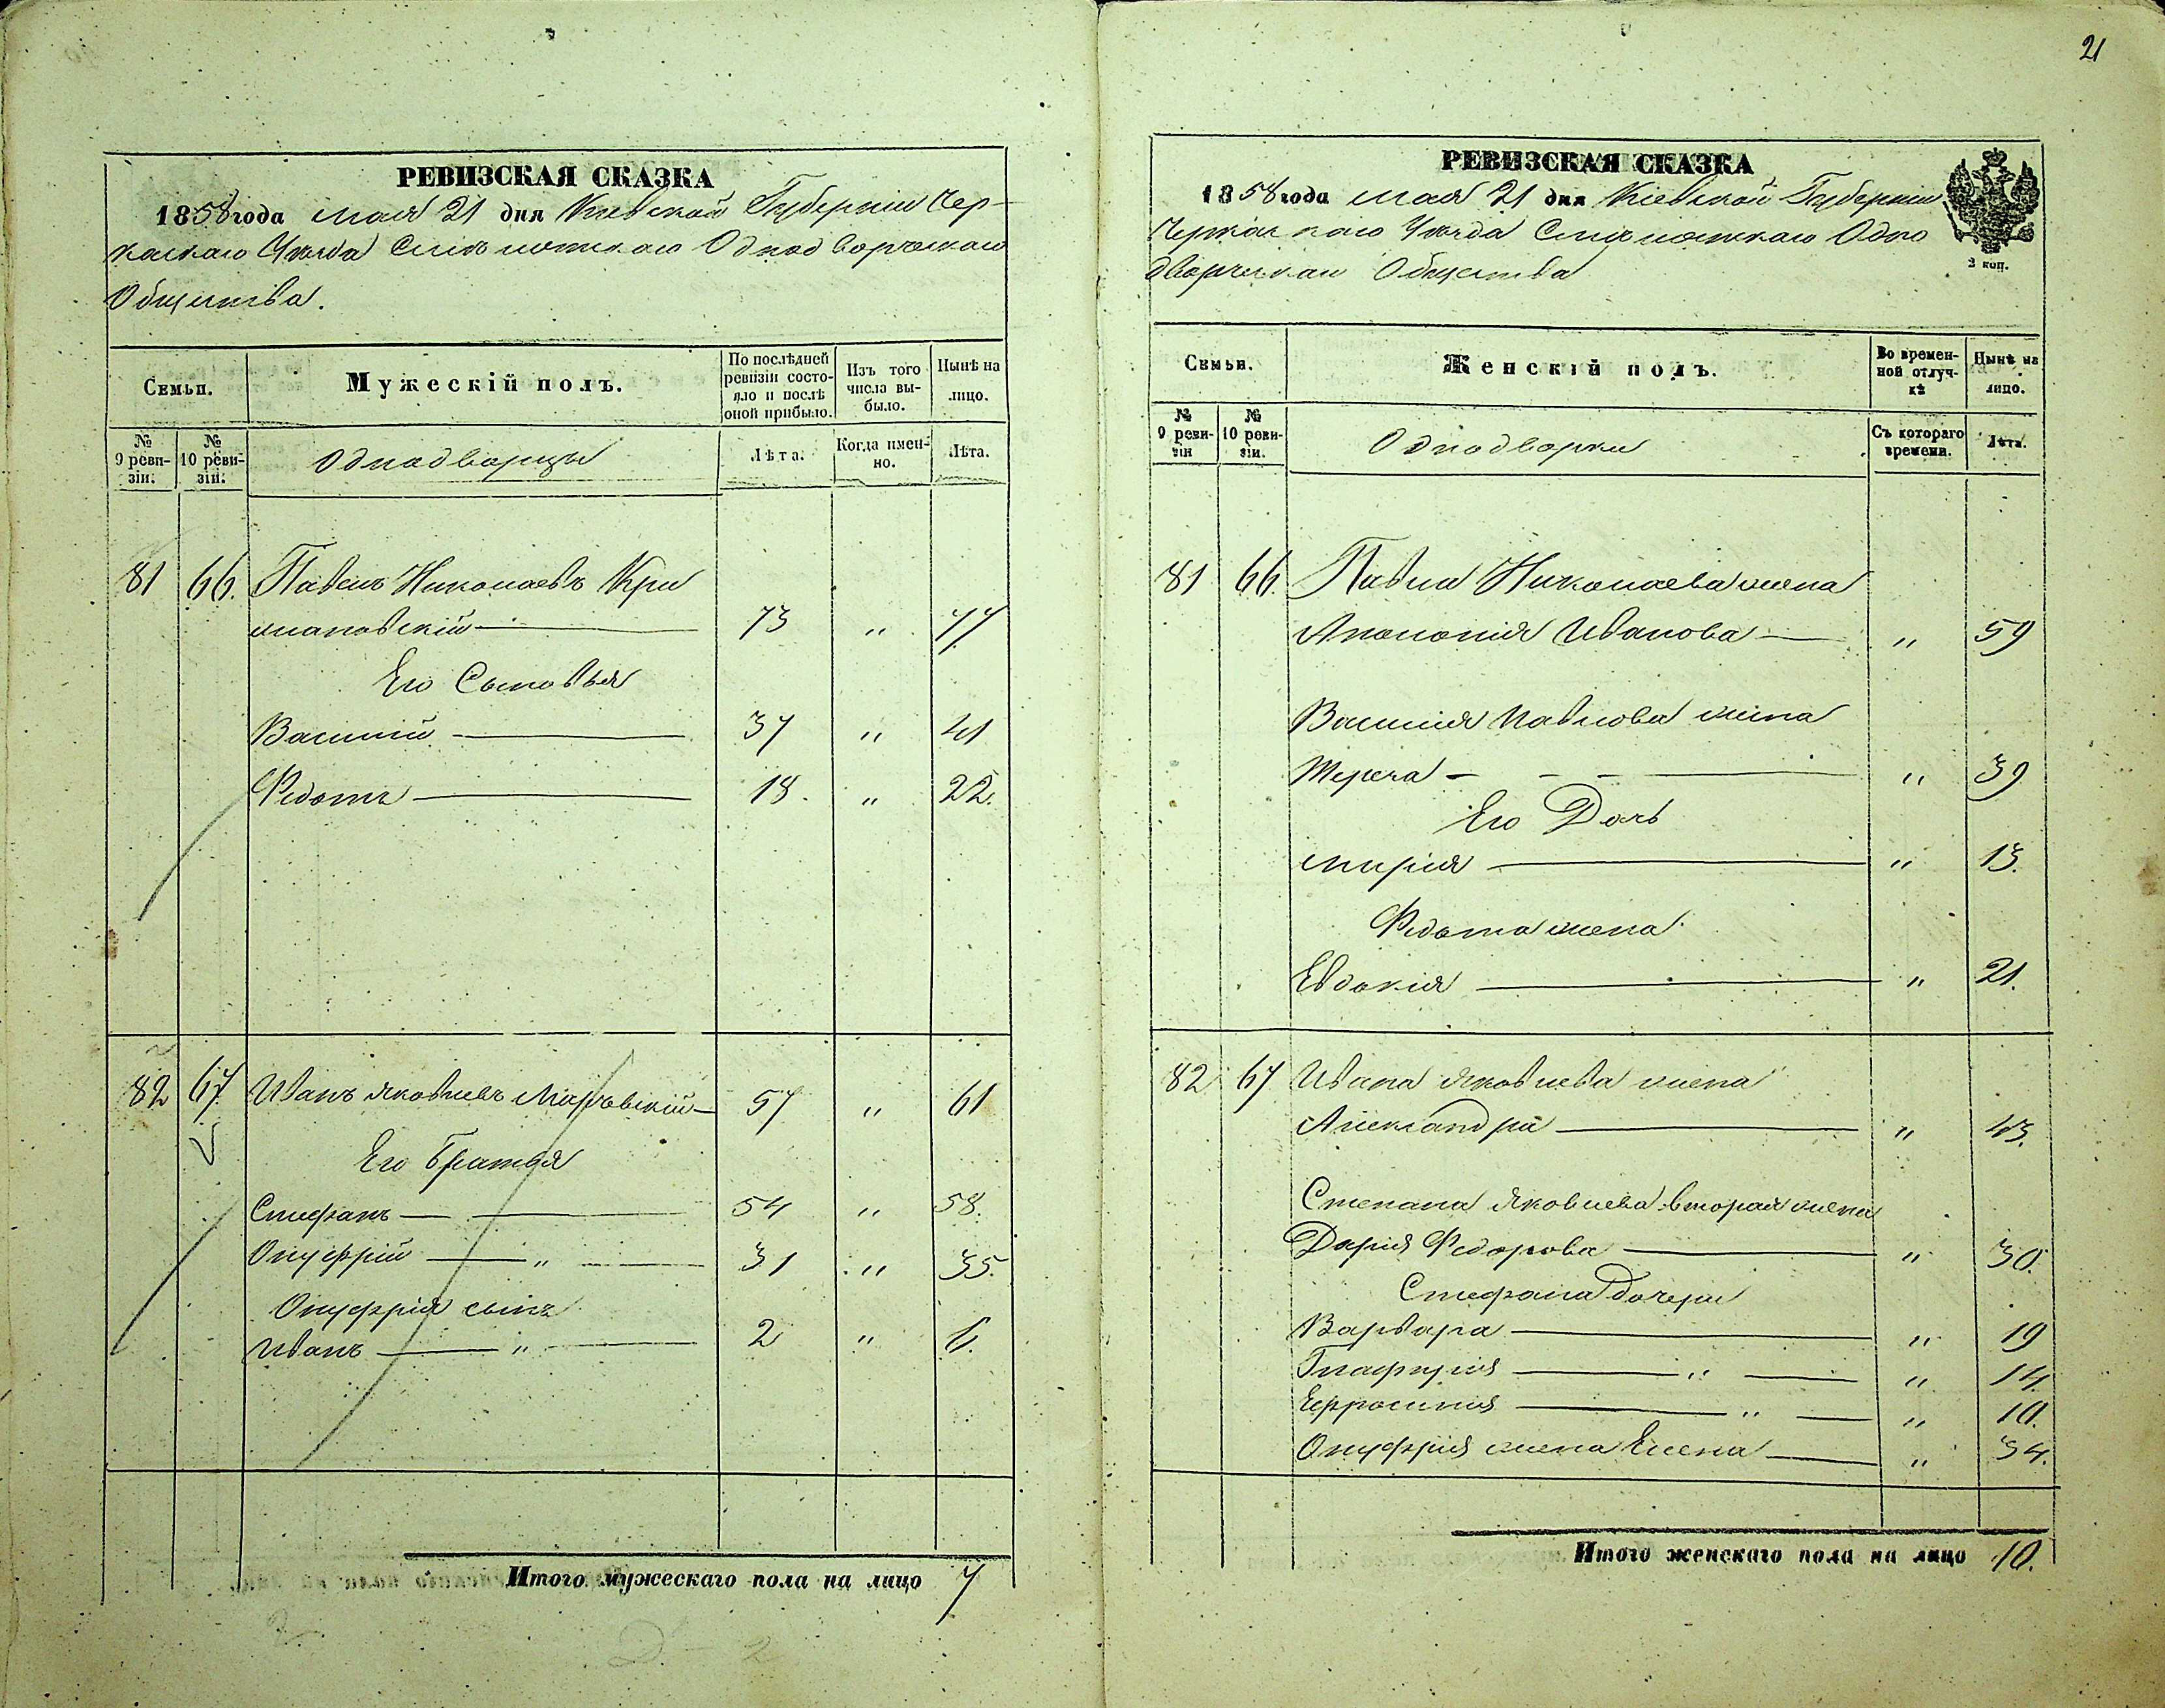 21
РЕВИЗСКАЯ СКАЗКА
1858 года мая 21 дня Кіевской Губерніи Чер-
каскаго Уѣзда Смѣлянскаго Однодворческаго
Общества.
Семьи.
Мужескій полъ.
По послѣдней
ревизіи состо-
яло и послѣ
оной прибыло.
Изъ того
числа вы-
было.
Нынѣ на
лицо.
№
9 реви-
зіи.
№
10 реви-
зіи.
Однодворцы
Лѣта.
Когда имен-
но.
Лѣта.
81 66. Павелъ Николаевъ Кри
73 " 77
Его Сыновья
Василій 37 " 41
Федотъ 18. " 22.
82 67. Иванъ Яковлевъ 57 " 61
Его Братья
Стефанъ 54 " 58.
Онуфрій " 31 " 35.
Онуфрія сынъ
Иванъ " 2 " 6.
Итого мужескаго пола на лицо 7
РЕВИЗСКАЯ СКАЗКА
1858 года мая 21 дня Кіевской Губерніи
Черкаскаго Уѣзда Смѣлянскаго Одно
дворческаго Общества
2 коп.
Семьи.
Женскій полъ.
Во времен-
ной отлуч-
кѣ
Нынѣ на
лицо.
№
9 реви-
зіи
№
10 реви-
зіи.
Однодворки
Съ котораго
времени.
Лѣта.
81 66. Павла Николаева жена
Аполонія Иванова " 59
Василія Павлова жена
Тереза " 39
Его Дочь
Марія " 13.
Федота жена
Евдокія " 21.
82 67 Ивана Яковлева жена
Александра " 43.
Степана Яковлева вторая жена
Дарія Федорова " 30.
Стефана дочери
Варвара " 19
Глафирія " " 14.
Ефросинія " " 10.
Онуфрія жена Елена " 34.
Итого женскаго пола на лицо 10.